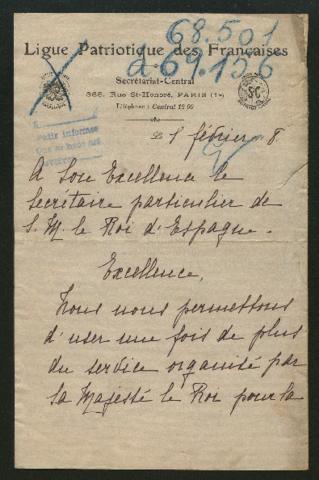 68.501
d-69.156
Ligue Patriotique des Françaises
Secrétariat-Central
368, Rue St-Honoré, PARIS (1er)
Téléphone : Central 12 60
février 8
Pedir informe
A Son Excellence le
Secrétaire particulier de
S. M. le Roi d'Espagne.
Excellence,
Nous nous permettons
d'user une fois de plus
du service organisé par
Sa Majesté le Roi pour la